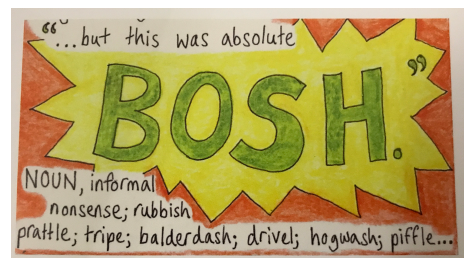 “...but this was absolute
BOSH.”
NOUN, informal
nonsense; rubbish
prattle; tripe; balderdash; drivel; hogwash; piffle...